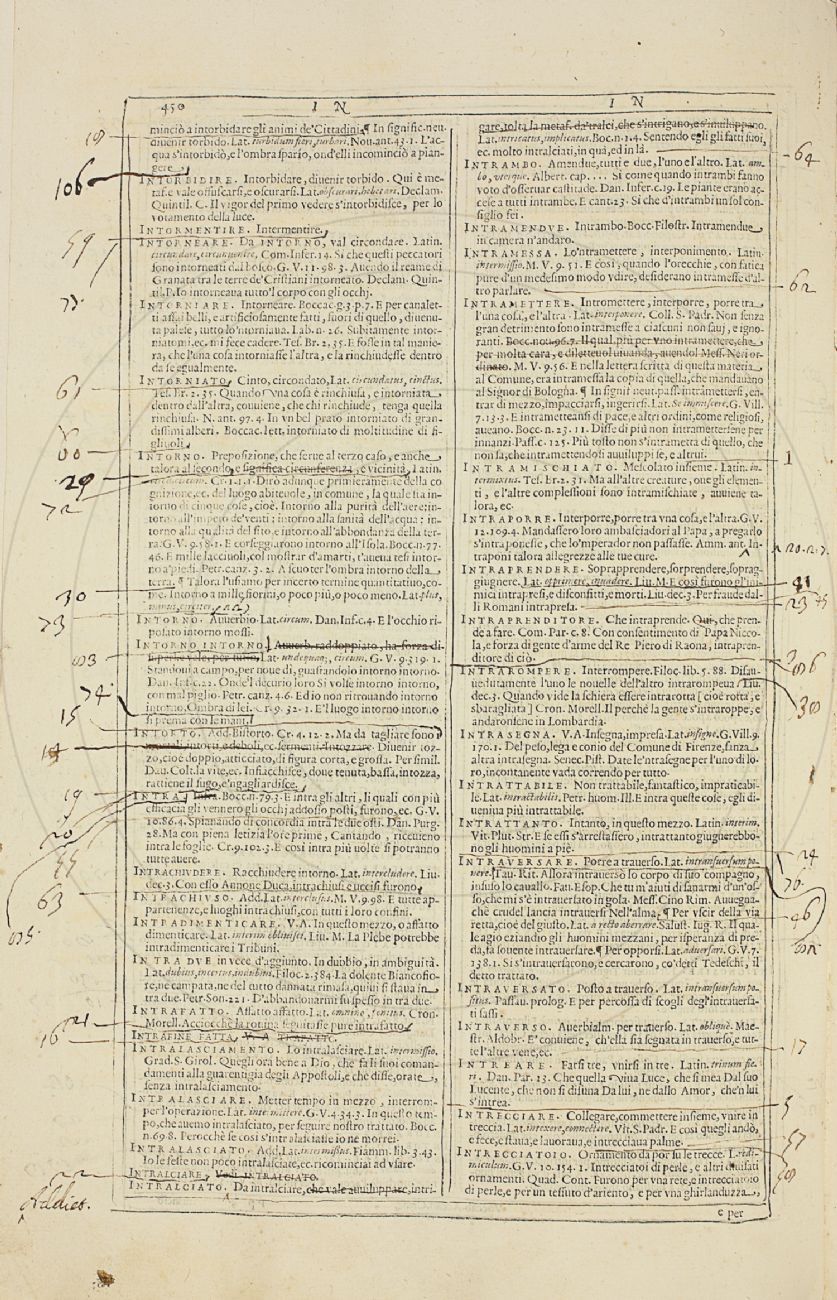 450 I N
minciò a intorbidare gli animi de' Cittadini. ¶ In signific. neu.
diuenir torbido. Lat. turbidum fieri, turbari. Nou. ant. 43. 1. L'ac-
qua s'intorbidò, e l'ombra sparìo, ond'elli incominciò a pian-
gere.
INTORBIDIRE. Intorbidare, diuenir torbido. Qui è me-
taf. e vale offuscarsi, e oscurarsi. Lat. obscurari, hebetari. Declam.
Quintil. C. Il vigor del primo vedere s'intorbidisce, per lo
votamento della luce.
INTORMENTIRE. Intermentire.
INTORNEARE. Da INTORNO, val circondare. Latin.
circundare, circumuenire, Com. Infer. 14. Sì che questi peccatori
sono intorneati dal bosco. G. V. 11. 98. 3. Auendo il reame di
Granata tra le terre de' Cristiani intorneato. Declam. Quin-
til. P. Io intorneaua tutto 'l corpo con gli occhj.
INTORNIARE. Intorneare. Boccac. g. 3. p. 7. E per canalet-
ti assai belli, e artificiosamente fatti, fuori di quello, diuenu-
ta palese, tutto lo 'ntorniaua. Lab. n. 26. Subitamente intor-
niatomi, ec. mi fece cadere. Tes. Br. 2. 35. E fosse in tal manie-
ra, che l'una cosa intorniasse l'altra, e la rinchiudesse dentro
da se egualmente.
INTORNIATO, Cinto, circondato, Lat. circundatus, cinctus.
Tes. Br. 2. 35. Quando vna cosa è rinchiusa, e intorniata
dentro dall'altra, conuiene, che chi rinchiude, tenga quella
rinchiusa. N. ant. 97. 4. In vn bel prato intorniato di gran-
dissimi alberi. Boccac. lett. intorniato di moltitudine di fi-
gliuoli.
INTORNO. Preposizione, che serue al terzo caso, e anche
talora al secondo, e significa circunferenza, e vicinità, Latin.
Cr. 1. 1. 1. Dirò adunque primieramente della co
gnizione, ec. del luogo abiteuole, in comune, la quale sta in-
torno di cinque cose, cioè. Intorno alla purità dell'aere: in-
torno all'impeto de' venti: intorno alla sanità dell'acqua: in-
torno alla qualità del sito, e intorno all'abbondanza della ter-
ra. G. V. 9. 58. 1. E corseggiarono intorno all'Isola. Bocc. n. 77.
46. E mille lacciuoli, col mostrar d'amarti, t'aueua tesi intor-
no a' piedi. Petr. canz. 3. 2. A scuoter l'ombra intorno della
terra. ¶ Talora l'usiamo per incerto termine quantitatiuo, co-
me. Intorno a mille fiorini, o poco più, o poco meno. Lat. plus,
minus, circiter.
INTORNO. Auuerbio. Lat. circum. Dan. Inf. c. 4. E l'occhio ri-
posato intorno mossi.
INTORNO INTORNO. Auuerb. raddoppiato, ha forza di
Lat. undequaq; circum. G. V. 9. 319. 1.
Standoui a campo, per noue dì, guastando intorno intorno.
Dan. Inf. c. 22. Onde 'l decurio loro Si volse intorno intorno,
con mal piglio. Petr. canz. 4. 6. Ed io non ritrouando intorno
intorno, Ombra di lei. Cr. 9. 32. 1. E 'l luogo intorno intorno
si prema con le mani.
INTORTO. Add. Bistorto. Cr. 4. 12. 2. Ma da tagliare sono
intorti, e deboli, ec. sermenti. Intozzare. Diuenir toz-
zo, cioè doppio, atticciato, di figura corta, e grossa. Per simil.
Dau. Colt. la vite, ec. Infiacchisce, doue tenuta, bassa, intozza,
rattiene il sugo, e 'ngagliardisce.
INTRA. Infra. Bocc. n. 79. 3. E intra gli altri, li quali con più
efficacia gli vennero gli occhj addosso posti, furono, ec. G. V.
10. 86. 4. Spianando di concordia intra le due osti. Dan. Purg.
28. Ma con piena letizia l'ore prime, Cantando, riceuieno
intra le foglie. Cr. 9. 102. 3. E così intra più volte si potranno
tutte auere.
INTRACHIVDERE. Racchiudere intorno. Lat. intercludere. Liu.
dec. 3. Con esso Annone Duca, intrachiusi e vccisi furono
INTRACHIVSO. Add. Lat. interclusus. M. V. 9. 98. E tutte ap-
partenenze, e luoghi intrachiusi, con tutti i loro confini.
INTRADIMENTICARE. V. A. In questo mezzo, o affatto
dimenticare. Lat. interim obliuisci. Liu. M. La Plebe potrebbe
intradimenticare i Tribuni.
IN TRA DVE in vece d'aggiunto. In dubbio, in ambiguità.
Lat. dubius, incertus. Filoc. 2. 384. La dolente Biancofio-
re, ne campata, ne del tutto dannata rimasa, quiui si staua in
tra due. Petr. Son. 221. D'abbandonarmi fu spesso in tra due.
INTRAFATTO. Affatto affatto. Lat. omnino, penitus. Cron.
Morell. Acciocchè la rotina seguitasse pure intrafatto
INTRAFINE FATTA, V. A. TRAFATTO.
INTRALASCIAMENTO. Lo intralasciare. Lat. intermissio.
Grad. S. Girol. Quegli ora bene a Dio, che fa li suoi coman-
damenti alla guarentigia degli Appostoli, e che disse, orate,
senza intralasciamento.
INTRALASCIARE. Metter tempo in mezzo, interrom-
per l'operazione. Lat. intermittere. G. V. 4. 34. 3. In questo tem-
po, che auemo intralasciato, per seguire nostro trattato. Bocc.
n. 69. 8. Perocchè se così s'intralasciasse io ne morrei.
INTRALASCIATO. Add. Lat. intermissus. Fiamm. lib. 3. 43.
Io le feste non poco intralasciate, ec. ricominciai ad vsare.
INTRALCIARE, Vedi INTRALCIATO.
INTRALCIATO. Da intralciare, che vale auuiluppare, intri-
I N
gare, tolta la metaf. da' tralci, che s'intrigano, e s'inuiluppano.
Lat. intricatus, implicatus. Boc. n. 1. 4. Sentendo egli gli fatti suoi,
ec. molto intralciati, in quà, ed in là.
INTRAMBO. Amendue, tutti e due, l'uno e l'altro. Lat. am-
bo, uterque. Albert. cap. . . . Sì come quando intrambi fanno
voto d'osseruar castitade. Dan. Infer. c. 19. Le piante erano ac-
cese a tutti intrambe. E cant. 23. Sì che d'intrambi vn sol con-
siglio fei.
INTRAMENDVE. Intrambo. Bocc. Filostr. Intramendue
in camera n'andaro.
INTRAMESSA. Lo 'ntramettere, interponimento. Latin.
intermissio. M. V. 9. 51. E così, quando l'orecchie, con fatica
pure d'un medesimo modo vdire, desiderano intramesse d'al-
tro parlare.
INTRAMETTERE. Intromettere, interporre, porre tra
l'una cosa, e l'altra. Lat. interponere. Coll. S. Padr. Non senza
gran detrimento sono intramesse a ciascuni non sauj, e igno-
ranti. Bocc. nou. 96. 7. Il qual più per vno intramettere, che
per molta cara, e diletteuol viuanda, auendol Mess. Neri or-
dinato. M. V. 9. 56. E nella lettera scritta di questa materia
al Comune, era intramessa la copia di quella, che mandauano
al Signor di Bologna. ¶ In signif. neut. pass. intramettersi, en-
trar di mezzo, impacciarsi, ingerirsi. Lat. Se immiscere. G. Vill.
7. 13. 3. E intrametteansi di pace, e altri ordini, come religiosi,
aueano. Bocc. n. 23. 11. Disse di più non intramettersene per
innanzi. Pass. c. 125. Più tosto non s'intrametta di quello, che
non sa, che intramettendosi auuiluppi se, e altrui.
INTRAMISCHIATO. Mescolato insieme. Latin. in-
termixtus. Tes. Br. 2. 31. Ma all'altre creature, oue gli elemen-
ti, e l'altre complessioni sono intramischiate, auuiene ta-
lora, ec.
INTRAPORRE. Interporre, porre tra vna cosa, e l'altra. G. V.
12. 109. 4. Mandassero loro ambasciadori al Papa, a pregarlo
s'intraponesse, che lo 'mperador non passasse. Amm. ant. In-
traponi talora allegrezze alle tue cure.
INTRAPRENDERE. Soprapprendere, sorprendere, soprag-
giugnere. Lat. opprimere, inuadere. Liu. M. E così furono gl'ini-
mica intrapresi, e disconfitti, e morti. Liu. dec. 3. Per fraude dal-
li Romani intrapresa.
INTRAPRENDITORE. Che intraprende. Qui, che pren-
de a fare. Com. Par. c. 8. Con consentimento di Papa Nicco-
la, e forza di gente d'arme del Re Piero di Raona, intrapren-
ditore di ciò.
INTRAROMPERE. Interrompere. Filoc. lib. 5. 88. Disau-
uedutamente l'uno le nouelle dell'altro intrarompeua. Liu.
dec. 3. Quando vide la schiera essere intrarotta [cioè rotta, e
sbaragliata] Cron. Morell. Il perchè la gente s'intraroppe, e
andaronsene in Lombardia.
INTRASEGNA. V. A. Insegna, impresa. Lat. insigne. G. Vill. 9.
170. 1. Del peso, lega e conio del Comune di Firenze, sanza
altra intrasegna. Senec. Pist. Date le 'ntrasegne per l'uno di lo-
ro, incontanente vada correndo per tutto.
INTRATTABILE. Non trattabile, fantastico, impraticabi-
le. Lat. intractabilis, Petr. huom. Ill. E intra queste cose, egli di-
ueniua più intrattabile.
INTRATTANTO. Intanto, in questo mezzo. Latin. interim.
Vit. Plut. Str. E se essi s'arrestassero, intrattanto giugnerebbo-
no gli huomini a piè.
INTRAVERSARE. Porre a trauerso. Lat. intransuersum po-
nere. Fau. Rit. Allora intrauersò lo corpo di suo compagno,
insuso lo cauallo. Fau. Esop. Che tu m'aiuti di sanarmi d'un'os-
so, che mi s'è intrauersato in gola. Mess. Cino Rim. Auuegna-
chè crudel lancia intrauersi Nell'alma, ¶ Per vscir della via
retta, cioè del giusto. Lat. a recto aberrare. Salust. Iug. R. Il qua-
le agio eziandio gli huomini mezzani, per isperanza di pre-
da, fa souente intrauersare. ¶ Per opporsi. Lat. aduersari. G. V. 7.
138. 1. Si s'intrauersarono, e cercarono, co' detti Tedeschi, il
detto trattato.
INTRAVERSATO. Posto a trauerso. Lat. intransuersum po-
situs. Passau. prolog. E per percossa di scogli degl'intrauersa-
ti sassi.
INTRAVERSO. Auerbialm. per trauerso. Lat. obliquè. Mae-
str. Aldobr. E' conuiene, ch'ella sia segnata in trauerso, e tut-
te l'altre vene, ec.
INTREARE. Farsi tre, vnirsi in tre. Latin. trinum fie-
ri. Dan. Par. 13. Che quella viua Luce, che si mea Dal suo
lucente, che non si disuna Da lui, ne dallo Amor, che 'n lui
s'intrea.
INTRECCIARE. Collegare, commettere insieme, vnire in
treccia. Lat. intexere, connectere. Vit. S. Padr. E così quegli andò,
e fece, e staua, e lauoraua, e intrecciaua palme.
INTRECCIATOIO. Ornamento da por su le trecce. Lat. redi-
miculum. G. V. 10. 154. 1. Intrecciatoi di perle, e altri diuisati
ornamenti. Quad. Cont. Furono per vna rete, e intrecciatoio
di perle, e per vn tessuto d'ariento, e per vna ghirlanduzza
c per
106
59
61
29
72
30
73
74
15
19
20
63
16
64
62
1
41
23
2
30
24
46
17
5
57